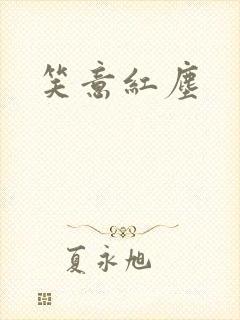 笑意紅塵
夏永旭